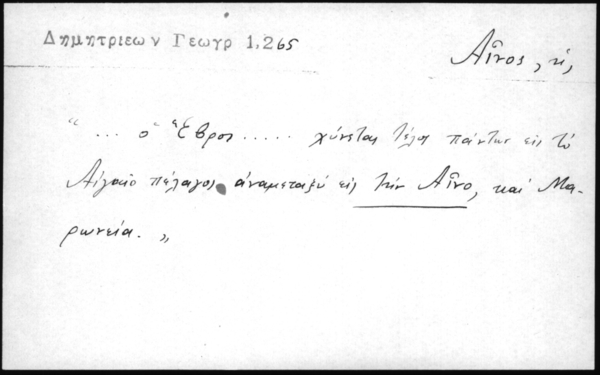 Δημητριεων Γεωγρ 1,265
Αἶνος, ἡ,
"... ὁ Ἕβρος ..... χύνεται τέλος πάντων εἰς τὸ
Αἰγαῖο πέλαγος ἀναμεταξὺ εἰς τὴν Αἶνο, καὶ Μα-
ρωνεία. "